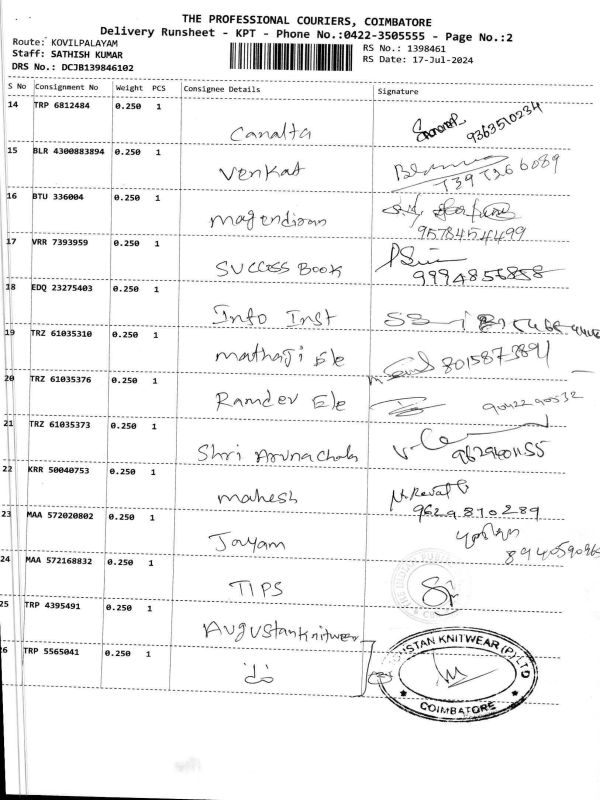 THE PROFESSIONAL COURIERS, COIMBATORE
Delivery Runsheet - KPT - Phone No.:0422-3505555 - Page No.:2
Route: KOVILPALAYAM
RS No.: 1398461
Staff: SATHISH KUMAR
RS Date: 17-Jul-2024
DRS No.: DCJB139846102
S No Consignment No Weight PCS Consignee Details Signature
14 TRP 6812484 0.250 1
Canalta 9363510234
15 BLR 4300883894 0.250 1
Venkat
16 BTU 336004 0.250 1
Magendiran 9578454499
17 VRR 7393959 0.250 1
SUCCESS BOOK 9994856858
18 EDQ 23275403 0.250 1
Info Inst
19 TRZ 61035310 0.250 1
Mathaji Ele 8015873891
20 TRZ 61035376 0.250 1
Ramdev Ele 9042290532
21 TRZ 61035373 0.250 1
Shri Arunachala
22 KRR 50040753 0.250 1
Mahesh 9629870289
23 MAA 572020802 0.250 1
Jayam
24 MAA 572168832 0.250 1
TIPS
25 TRP 4395491 0.250 1
Augustan Knitwear
26 TRP 5565041 0.250 1
do
KNITWEAR (P) LTD
COIMBATORE